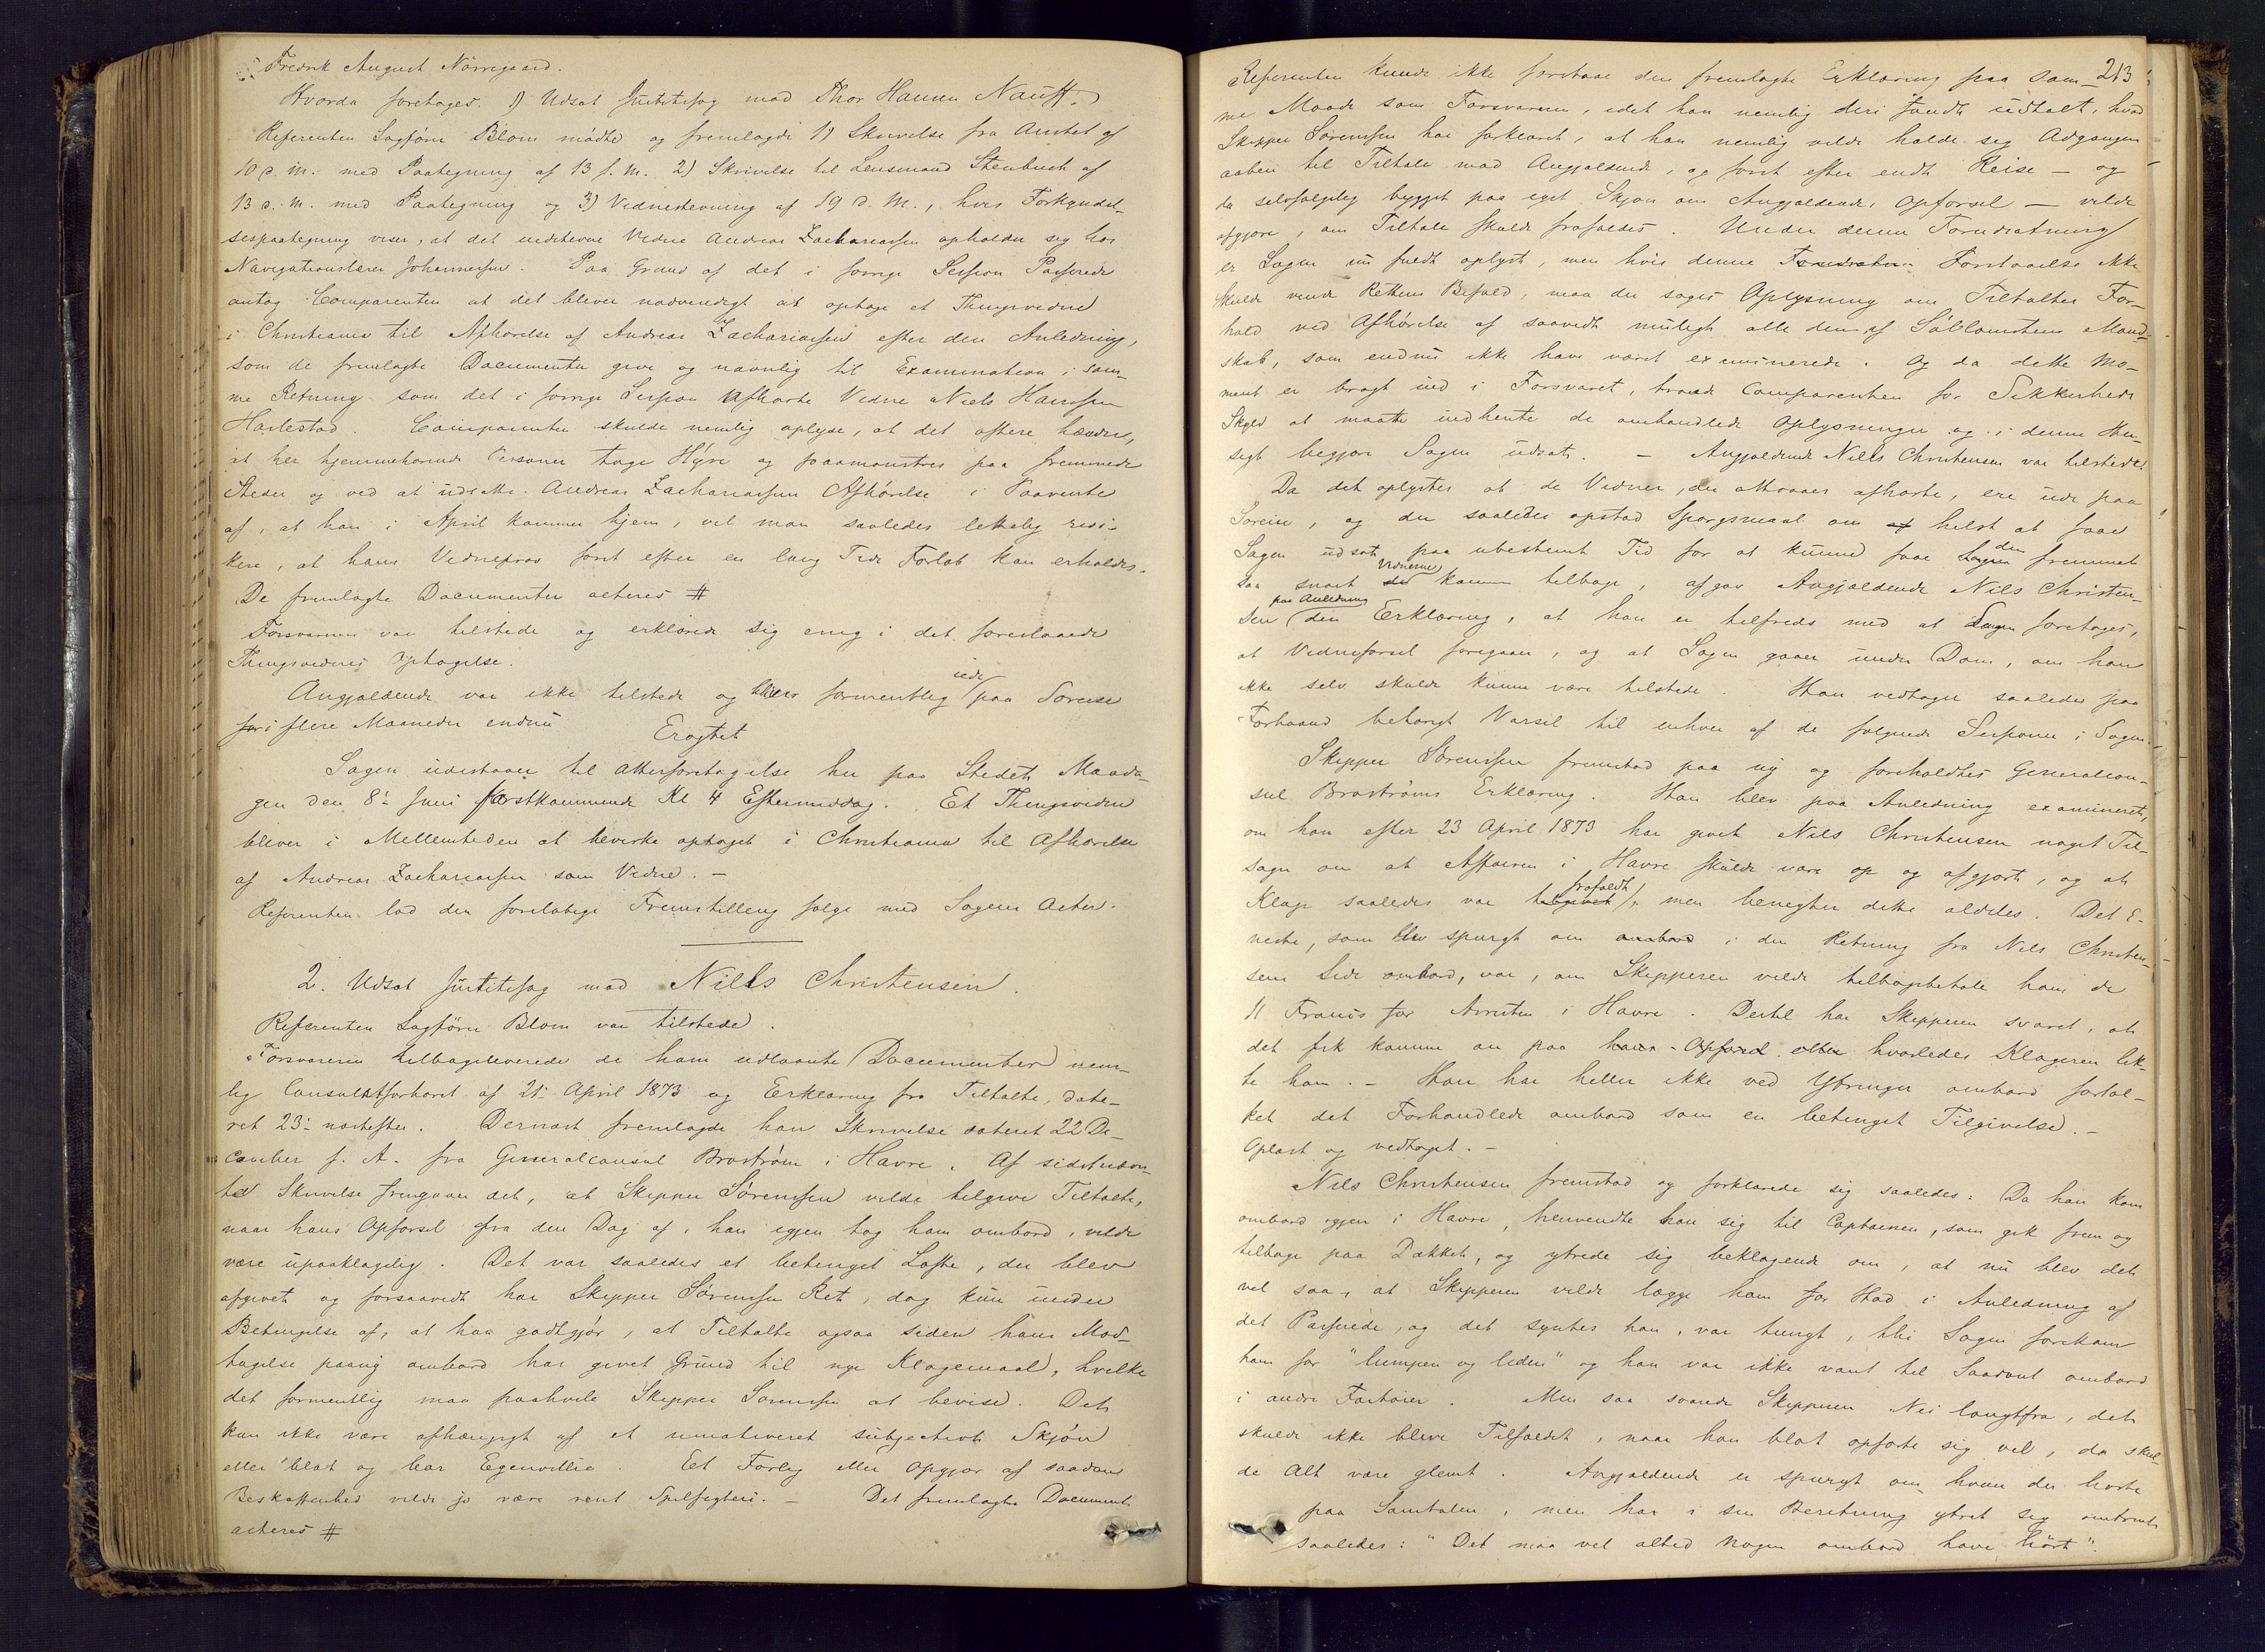 Fredrik August Nörregaard.
Hvorda foretages. 1) Udsat Justitssag mod Thor Hansen Nauff.
Referenten Sagförer Blom mödte og fremlagde 1) Skrivelse fra Amtet af
10 d. M. med Paategning af 13 s. M. 2) Skrivelse til Lensmand Stenbuch af
13 d. M. med Paategning og 3) Vidnestevning af 19 d. M., hvis Forkyndel-
sespaategning viser, at det indstevnte Vidne Andreas Zachariassen opholder sig hos
Navigationslærer Johannessen. Paa Grund af det i forrige Session Passerede
antog Comparenten at det bliver nødvendigt at optage et Thingsvidne
i Christiania til Afhørelse af Andreas Zachariassen efter den Anledning,
som de fremlagte Documenter give og navnlig til Examination i sam-
me Retning som det i forrige Session afhørte Vidne Niels Hanssen
Harlestad. Comparenten skulde nemlig oplyse, at det oftere hænder,
at her hjemmehørende Personer tage Hyre og paamønstres paa fremmede
Steder og ved at udsætte Andreas Zachariassens Afhørelse i Paavente
af, at han i April kommer hjem, vil man saaledes lettelig risi-
kere, at hans Vidneprov først efter en lang Tids Forløb kan erholdes.
De fremlagte Documenter acteres #
Forsvareren var tilstede og erklærede sig enig i det foreslaaede
Thingsvidnes Optagelse.
Angjældende var ikke tilstede og bliver formentlig ude paa Søreise
for i flere Maaneder endnu
Eragtet
Sagen udestaaer til Atterforetagelse her paa Stedet Manda-
gen den 8de Juni førstkommende Kl 4 Eftermiddag. Et Thingsvidne
bliver i Mellemtiden at bevirke optaget i Christiania til Afhørelse
af Andreas Zachariassen som Vidne. –
Referenten lod den foreløbige Fremstilling følge med Sagens Acter.
2. Udsat Justitssag mod Nills Christensen.
Referenten Sagförer Blom var tilstede.
Forsvareren tilbageleverede de ham udlaante Documenter nem-
lig Consulatsforhøret af 21de April 1873 og Erklæring fra Tiltalte, date-
ret 23de næstefter. Dernæst fremlagde han Skrivelse dateret 22 De-
cember f. A. fra Generalconsul Broström i Havre. Af sidstnævn-
te Skrivelse fremgaaer det, at Skipper Sørenssen vilde tilgive Tiltalte,
naar hans Opførsel fra den Dag af, han igjen tog ham ombord, vilde
være upaaklagelig. Det var saaledes et betinget Løfte, der blev
afgivet og forsaavidt har Skipper Sørenssen Ret, dog kun under
Betingelse af, at han godtgjør, at Tiltalte ogsaa siden hans Mod-
tagelse paany ombord har givet Grund til nye Klagemaal, hvilke
det formentlig maa paahvile Skipper Sørenssen at bevise. Det
kan ikke være afhængigt af et umotiveret subjectivt Skjøn
eller blot og bar Egenvillie. Et Forlig eller Opgjør af saadan
Beskaffenhed vilde jo være rent Spilfegteri. – Det fremlagte Document
acteres #
213
Referenten kunde ikke forstaae den fremlagte Erklæring paa sam-
me Maade som Forsvareren, idet han nemlig deri fandt udtalt, hvad
Skipper Sørenssen har forklaret, at han nemlig vilde holde sig Adgangen
aaben til Tiltale mod Angjældende, og først efter endt Reise – og
da selvfølgelig bygget paa eget Skjøn om Angjældendes Opførsel – vilde
afgjøre, om Tiltale skulde frafaldes. Under denne Forudsætning
er Sagen nu fuldt oplyst, men hvis denne Forudsætn. Forstaaelse ikke
skulde vinde Rettens Bifald, maa der søges Oplysning om Tiltaltes For-
hold ved Afhørelse af saavidt muligt alle dem af Söblomstens Mand-
skab, som endnu ikke have været examinerede. Og da dette Mo-
ment er bragt ind i Forsvaret, troede Comparenten for Sikkerheds
Skyld at maatte indhente de omhandlede Oplysninger og i denne Hen-
sigt begjære Sagen udsat. – Angjældende Nills Christensen var tilstede.
Da det oplystes at de Vidner, der attraaes afhørte, ere ude paa
Søreise, og der saaledes opstod Spørgsmaal om af helst at faae
Sagen udsat paa ubestemt Tid for at kunne faae Sagen den fremmet
saa snart de Vidnerne komme tilbage, afgav Angjældende Nils Christen-
sen paa Anledning den Erklæring, at han er tilfreds med at Sagen foretages,
at Vidneførsel foregaaer, og at Sagen gaaer under Dom, om han
ikke selv skulde kunne være tilstede. Han vedtager saaledes paa
Forhaand behørigt Varsel til enhver af de følgende Sessioner i Sagen.
Skipper Sørenssen fremstod paa ny og foreholdtes Generalcon-
sul Broströms Erklæring. Han blev paa Anledning examineret,
om han efter 23 April 1873 har givet Nils Christensen noget Til-
sagn om at Affæren i Havre skulde være op og afgjort, og at
Klage saaledes var tilgivet frafaldt, men benegter dette aldeles. Det E-
neste, som blev spurgt om ombord i den Retning fra Nils Christen-
sens Side ombord, var, om Skipperen vilde tilbagebetale ham de
11 Francs for Arresten i Havre. Dertil har Skipperen svaret, at
det fik komme an paa hans Opførsel eller hvorledes Klageren lik-
te ham. – Han har heller ikke ved Ytringer ombord fortol-
ket det Forhandlede ombord som en betinget Tilgivelse. –
Oplæst og vedtaget. –
Nils Christensen fremstod og forklarede sig saaledes: Da han kom
ombord igjen i Havre, henvendte han sig til Captainen, som gik frem og
tilbage paa Dækket, og ytrede sig beklagende om, at nu blev det
vel saa, at Skipperen vilde lægge ham for Had i Anledning af
det Passerede, og det syntes han, var tungt, thi Sagen forekom
ham for "lumpen og liden" og han var ikke vant til Saadant ombord
i andre Fartøier. Men saa svarede Skipperen Nei langtfra, det
skulde ikke blive Tilfældet, naar han blot opførte sig vel, da skul-
de Alt være glemt. Angjældende er spurgt om, hvem der hørte
paa Samtalen, men har i sin Beretning ytret sig omtrent
saaledes: "Det maa vel altid Nogen ombord have hørt".